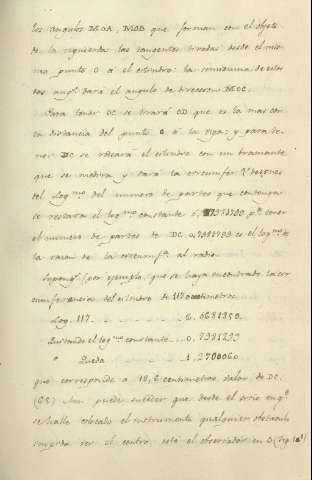 los angulos MOA, MOB que forman con el objeto
de la izquierda las tangentes tiradas desde el mis-
mo punto O á el cilindro: la semisuma de estos
dos angs. dará el angulo de direccion MOC.
Para tener OC se tirará OD que es la mas cor-
ta distancia del punto O á la ; y para te-
ner DC se rodeará el cilindro con un bramante
que se medirá y dará la circumfer.ª despues
del Log.mo del numero de partes que contenga
se restará el log.mo constante 0,7981799 p.ª tener
el numero de partes de DC. 0,7981799 es el log.mo de
la razon de la circumf.ª al radio.
Supong.s, por ejemplo, que se haya encontrado la cir-
cumferencia del cilindro de 117 centimetros.
Log. 117 ... 2,0681859.
Quitando el log.mo constante ... 0,7981799
Queda ... 1,2700060
que corresponde á 18,6 centimetros valor de DC.
(68) Aun puede suceder que desde el sitio en q.e
se halle colocado el instrumento qualquier obstaculo
impida ver el centro: está el observador en O (Fig.